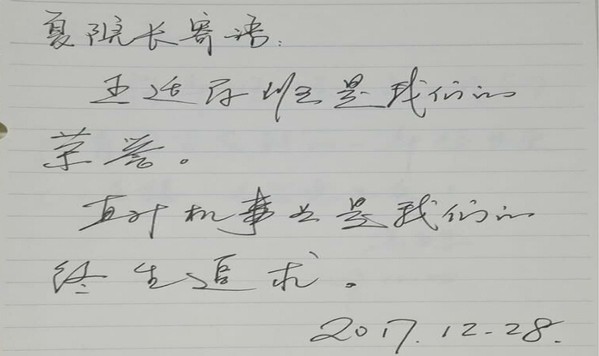 夏院长寄语:
王适存班是我们的
荣誉。
直升机事业是我们的
终生追求。
2017.12-28.